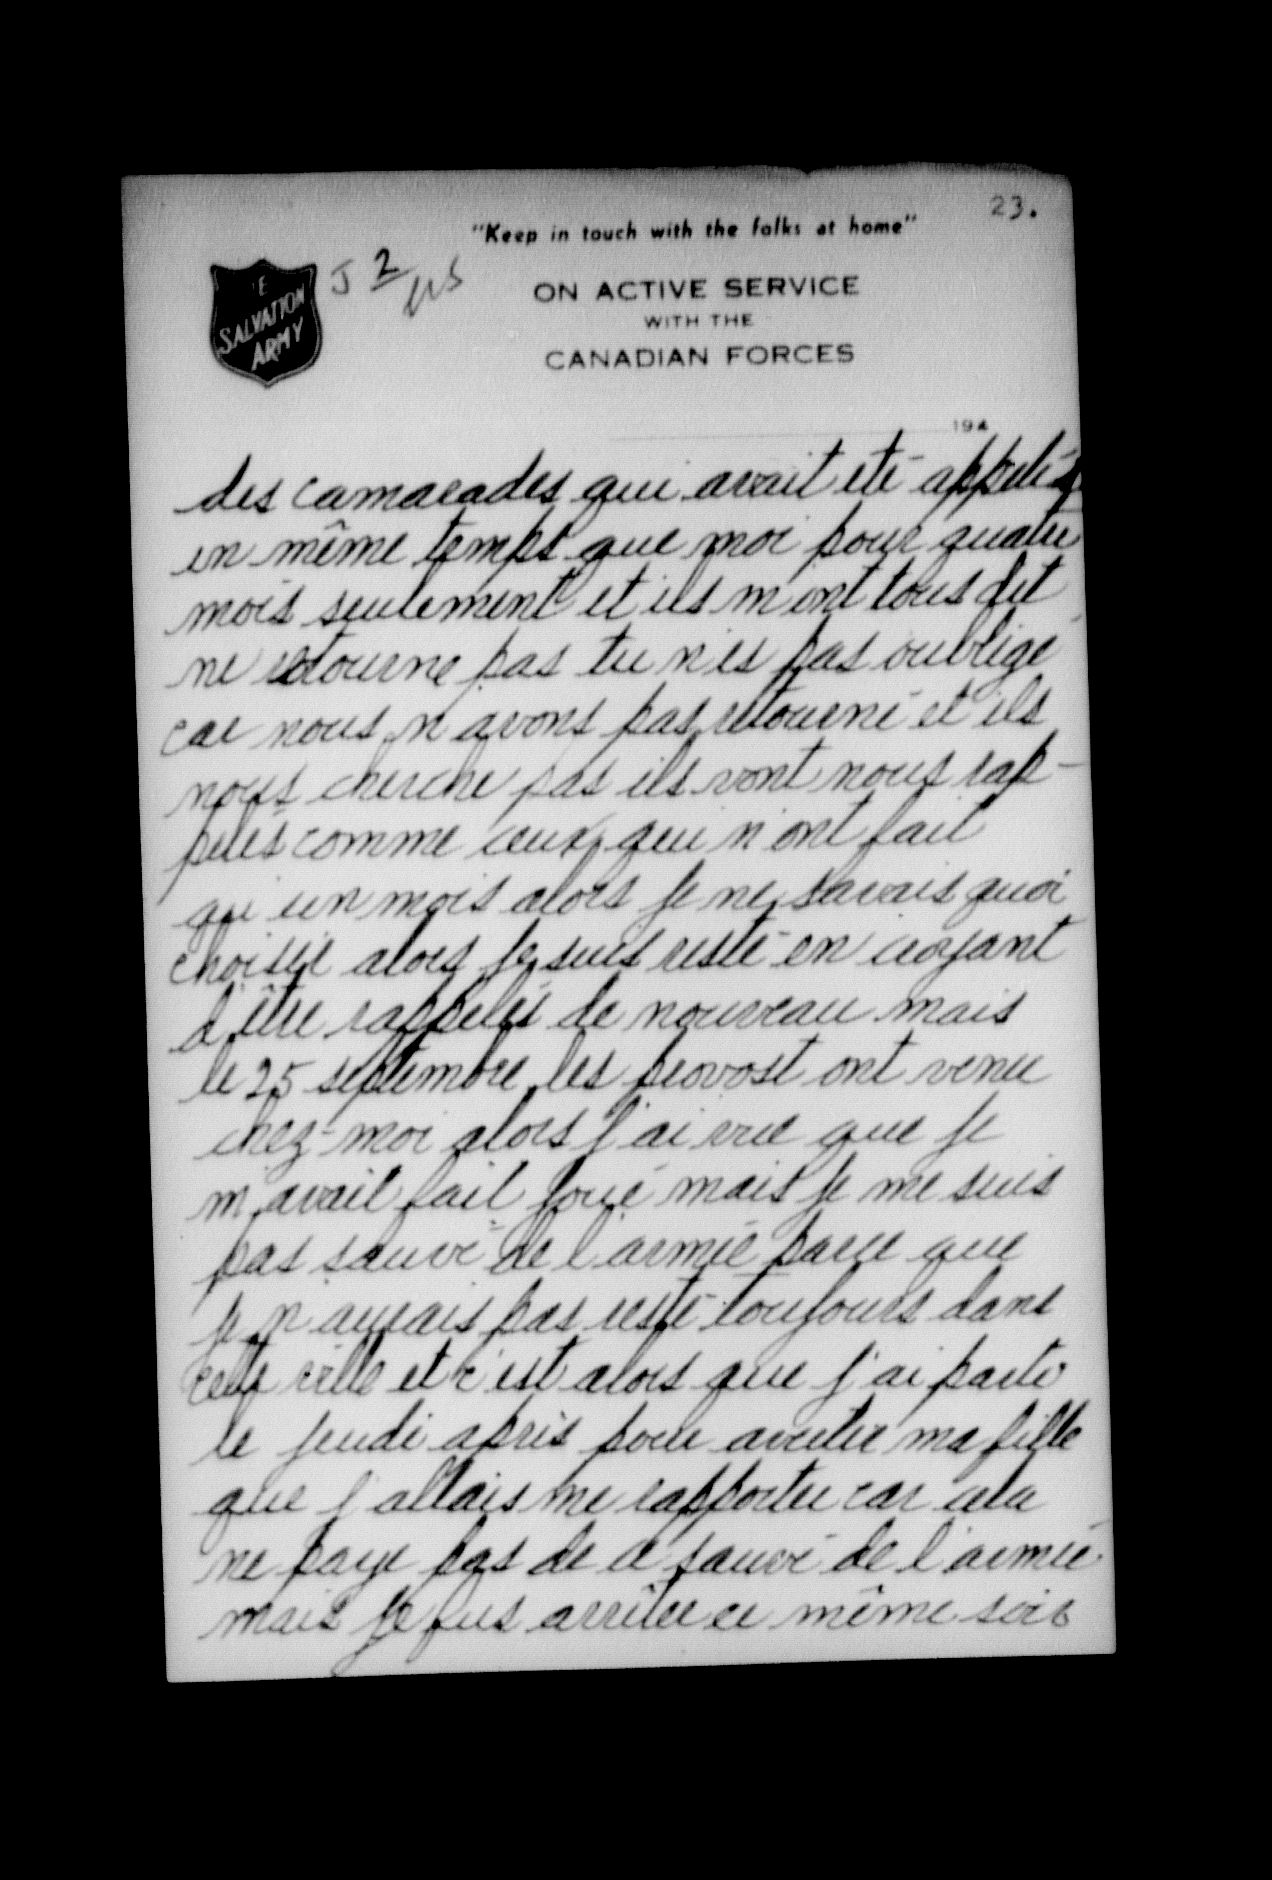 23.
"Keep in touch with the folks at home"
J 2
E
SALVATION
ARMY
ON ACTIVE SERVICE
WITH THE
CANADIAN FORCES
194
des camarades qui avait été appelés
en même temps que moi pour quatre
mois seulement et ils m ont tous dit
ne retourne pas tu n es pas oubligé
car nous n avons pas retourné et ils
nous cherche pas ils vont nous rap-
pelés comme ceux qui n ont fait
qu un mois alors je ne savais quoi
choisir alors je suis resté en croyant
d être rappelés de nouveau mais
le 25 septembre les provost ont venu
chez-moi alors j'ai vue que je
m avait fait joué mais je me suis
pas sauvé de l armée parce que
je n aurais pas resté toujours dans
cette ville et c'est alors que j'ai parti
le jeudi après pour avertir ma fille
que j allais me rapporter car cela
ne paye pas de ce sauvé de l'armée
mais je fus arrêter ce même soir